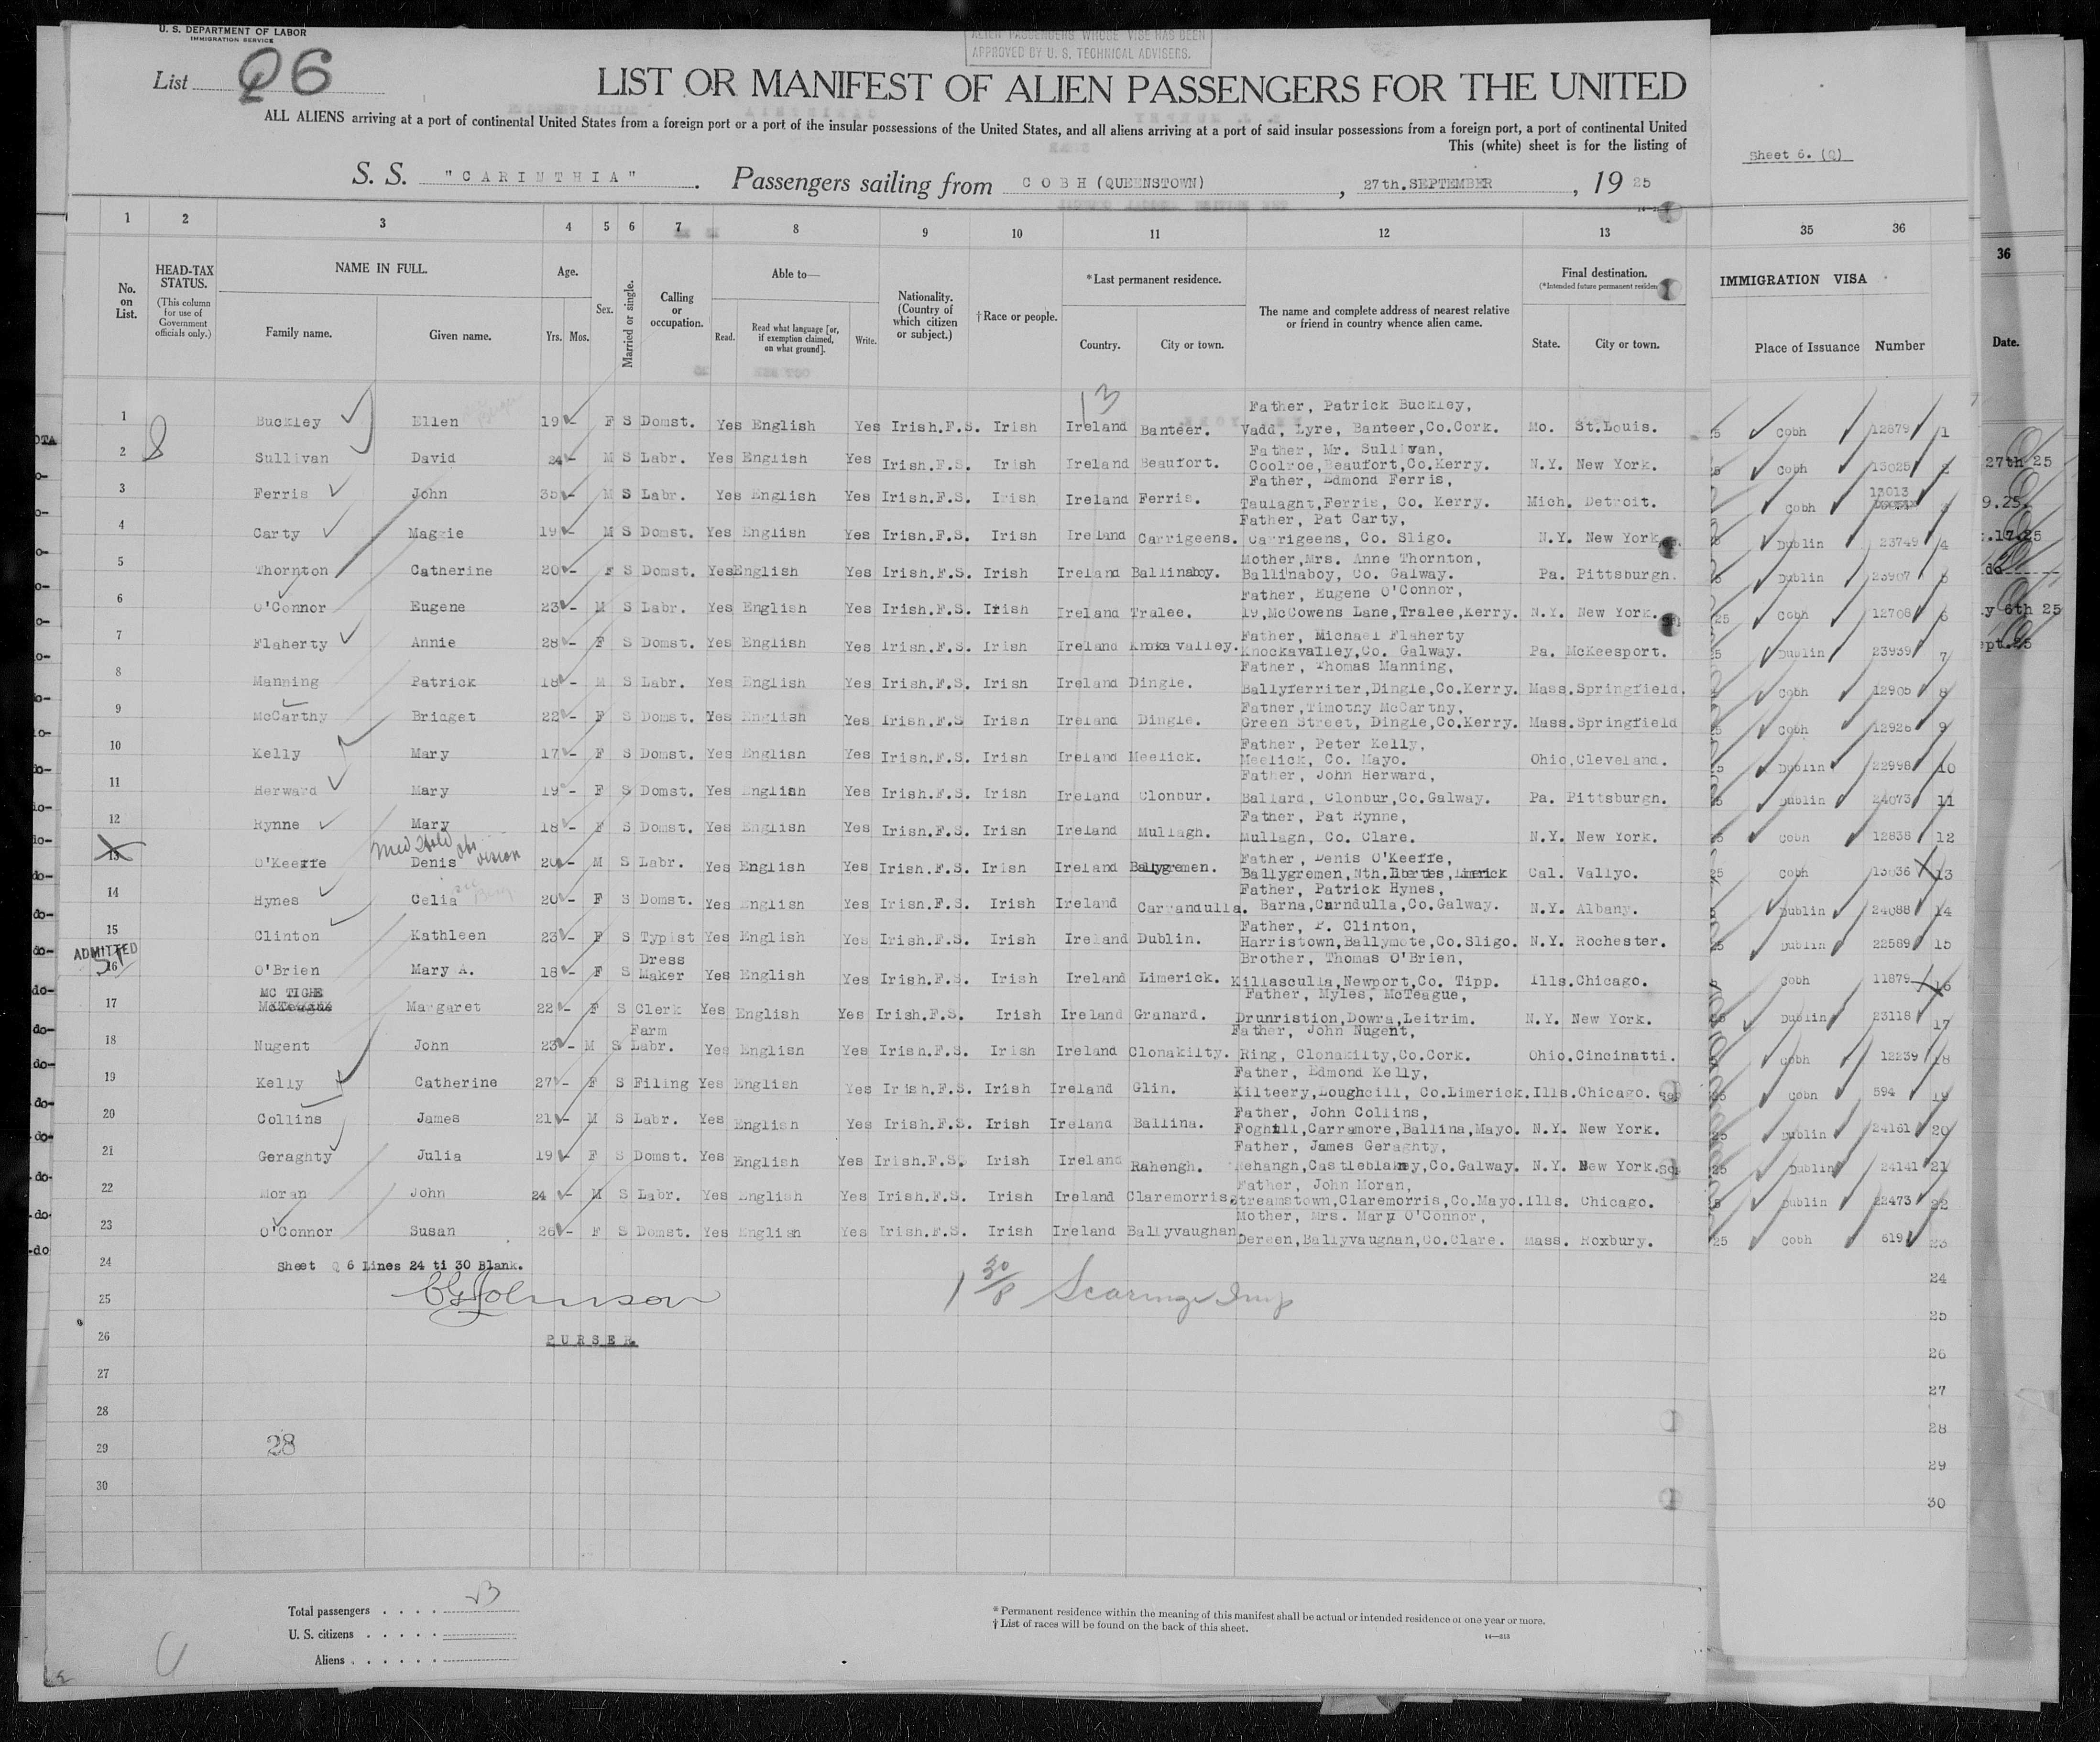 U. S. DEPARTMENT OF LABOR
IMMIGRATION SERVICE
ALIEN PASSENGERS WHOSE VISE HAS BEEN
APPROVED BY U. S. TECHNICAL ADVISERS.
List Q6
LIST OR MANIFEST OF ALIEN PASSENGERS FOR THE UNITED
ALL ALIENS arriving at a port of continental United States from a foreign port or a port of the insular possessions of the United States, and all aliens arriving at a port of said insular possessions from a foreign port, a port of continental United
This (white) sheet is for the listing of
Sheet 6. (Q)
S. S. "CARINTHIA" . Passengers sailing from COBH (QUEENSTOWN) , 27th.SEPTEMBER , 19 25
1 2 3 4 5 6 7 8 9 10 11 12 13 35 36
No. on List. HEAD-TAX STATUS. (This column for use of Government officials only.) NAME IN FULL. Family name. Given name. Age. Yrs. Mos. Sex. Married or single. Calling or occupation. Able to— Read. Read what language [or, if exemption claimed, on what ground]. Write. Nationality. (Country of which citizen or subject.) †Race or people. *Last permanent residence. Country. City or town. The name and complete address of nearest relative or friend in country whence alien came. Final destination. (*Intended future permanent residen State. City or town. IMMIGRATION VISA Place of Issuance Number
36
Date.
13
Father, Patrick Buckley,
1 Buckley Ellen 19 - F S Domst. Yes English Yes Irish.F.S. Irish Ireland Banteer. Vadd, Lyre, Banteer,Co.Cork. Mo. St.Louis. Cobh 12879 1
Father, Mr. Sullivan,
2 Sullivan David 24 - M S Labr. Yes English Yes Irish.F.S. Irish Ireland Beaufort. Coolroe,Beaufort,Co.Kerry. N.Y. New York. Cobh 13025 2
27th 25
Father, Edmond Ferris,
3 Ferris John 35 - M S Labr. Yes English Yes Irish.F.S. Irish Ireland Ferris. Taulaght,Ferris, Co. Kerry. Mich. Detroit. Cobh 13013 3
9.25.
Father, Pat Carty,
4 Carty Maggie 19 - M S Domst. Yes English Yes Irish.F.S. Irish Ireland Carrigeens. Carrigeens, Co. Sligo. N.Y. New York Dublin 23749 4
.17.25
Mother,Mrs. Anne Thornton,
5 Thornton Catherine 20 - F S Domst. Yes English Yes Irish.F.S. Irish Ireland Ballinaboy. Ballinaboy, Co. Galway. Pa. Pittsburgh. Dublin 23907 5
do
Father, Eugene O'Connor,
6 O'Connor Eugene 23 - M S Labr. Yes English Yes Irish.F.S. Irish Ireland Tralee. 19,McCowens Lane,Tralee,Kerry. N.Y. New York. Cobh 12708 6
y 6th 25
Father, Michael Flaherty
7 Flaherty Annie 28 - F S Domst. Yes English Yes Irish.F.S. Irish Ireland Knocka valley. Knockavalley,Co. Galway. Pa. McKeesport. Dublin 23939 7
ept.25
Father, Thomas Manning,
8 Manning Patrick 18 - M S Labr. Yes English Yes Irish.F.S. Irish Ireland Dingle. Ballyferriter,Dingle,Co.Kerry. Mass.Springfield. Cobh 12905 8
Father,Timothy McCarthy,
9 McCarthy Bridget 22 - F S Domst. Yes English Yes Irish.F.S Irish Ireland Dingle. Green Street, Dingle,Co.Kerry. Mass.Springfield Cobh 12926 9
Father, Peter Kelly,
10 Kelly Mary 17 - F S Domst. Yes English Yes Irish.F.S. Irish Ireland Meelick. Meelick, Co. Mayo. Ohio,Cleveland. Dublin 22998 10
Father, John Herward,
11 Herward Mary 19 - F S Domst. Yes English Yes Irish.F.S. Irish Ireland Clonbur. Ballard, Clonbur,Co.Galway. Pa. Pittsburgh. Dublin 24073 11
Father, Pat Hynne,
12 Hynne Mary 18 - F S Domst. Yes English Yes Irish.F.S. Irish Ireland Mullagh. Mullagh, Co. Clare. N.Y. New York. Cobh 12838 12
Father, Denis O'Keeffe,
13 O'Keeffe Denis 20 - M S Labr. Yes English Yes Irish.F.S. Irish Ireland Ballygremen. Ballygremen,Nth.Liberties,Limerick Cal. Vallyo. Cobh 13036 13
Father, Patrick Hynes,
14 Hynes Celia 20 - F S Domst. Yes English Yes Irish.F.S. Irish Ireland Carrandulla. Barna,Carndulla,Co.Galway. N.Y. Albany. Dublin 24088 14
Father, P. Clinton,
15 Clinton Kathleen 23 - F S Typist Yes English Yes Irish.F.S. Irish Ireland Dublin. Harristown,Ballymote,Co.Sligo. N.Y. Rochester. Dublin 22589 15
ADMITTED
Brother, Thomas O'Brien,
16 O'Brien Mary A. 18 - F S Dress Maker Yes English Yes Irish.F.S. Irish Ireland Limerick. Killasculla,Newport,Co. Tipp. Ills.Chicago. Cobh 11879 16
MC TIGHE
Father, Myles, McTeague,
17 McTeague Margaret 22 - F S Clerk Yes English Yes Irish.F.S. Irish Ireland Granard. Drunristion,Dowra,Leitrim. N.Y. New York. Dublin 23118 17
Father, John Nugent,
18 Nugent John 23 - M S Farm Labr. Yes English Yes Irish.F.S. Irish Ireland Clonakilty. Ring, Clonakilty,Co.Cork. Ohio.Cincinatti. Cobh 12239 18
Father, Edmond Kelly,
19 Kelly Catherine 27 - F S Filing Yes English Yes Irish.F.S. Irish Ireland Glin. Kilteery,Loughcill, Co.Limerick. Ills.Chicago. Cobh 594 19
Father, John Collins,
20 Collins James 21 - M S Labr. Yes English Yes Irish.F.S. Irish Ireland Ballina. Foghill,Carramore,Ballina,Mayo. N.Y. New York. Dublin 24161 20
Father, James Geraghty,
21 Geraghty Julia 19 - F S Domst. Yes English Yes Irish.F.S. Irish Ireland Rahengh. Rehangh,Castleblakney,Co.Galway. N.Y. New York. Dublin 24141 21
Father, John Moran,
22 Moran John 24 - M S Labr. Yes English Yes Irish.F.S. Irish Ireland Claremorris. Streamstown,Claremorris,Co.Mayo. Ills. Chicago. Dublin 22473 22
Mother, Mrs. Mary O'Connor,
23 O'Connor Susan 26 - F S Domst. Yes English Yes Irish.F.S. Irish Ireland Ballyvaughan Dereen,Ballyvaughan,Co.Clare. Mass. Roxbury. Cobh 619 23
24 Sheet Q 6 Lines 24 ti 30 Blank. 24
25 25
26 PURSER. 26
27 27
28 28
29 28 29
30 30
Total passengers . . . .
U. S. citizens . . . . .
Aliens . . . . . .
* Permanent residence within the meaning of this manifest shall be actual or intended residence of one year or more.
† List of races will be found on the back of this sheet.
14—213